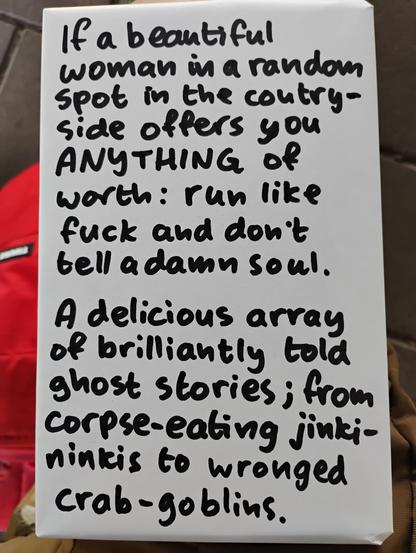 If a beautiful
woman in a random
spot in the coutry-
side offers you
ANYTHING of
worth: run like
fuck and don't
tell a damn soul.
A delicious array
of brilliantly told
ghost stories; from
corpse-eating jinki-
ninkis to wronged
crab-goblins.